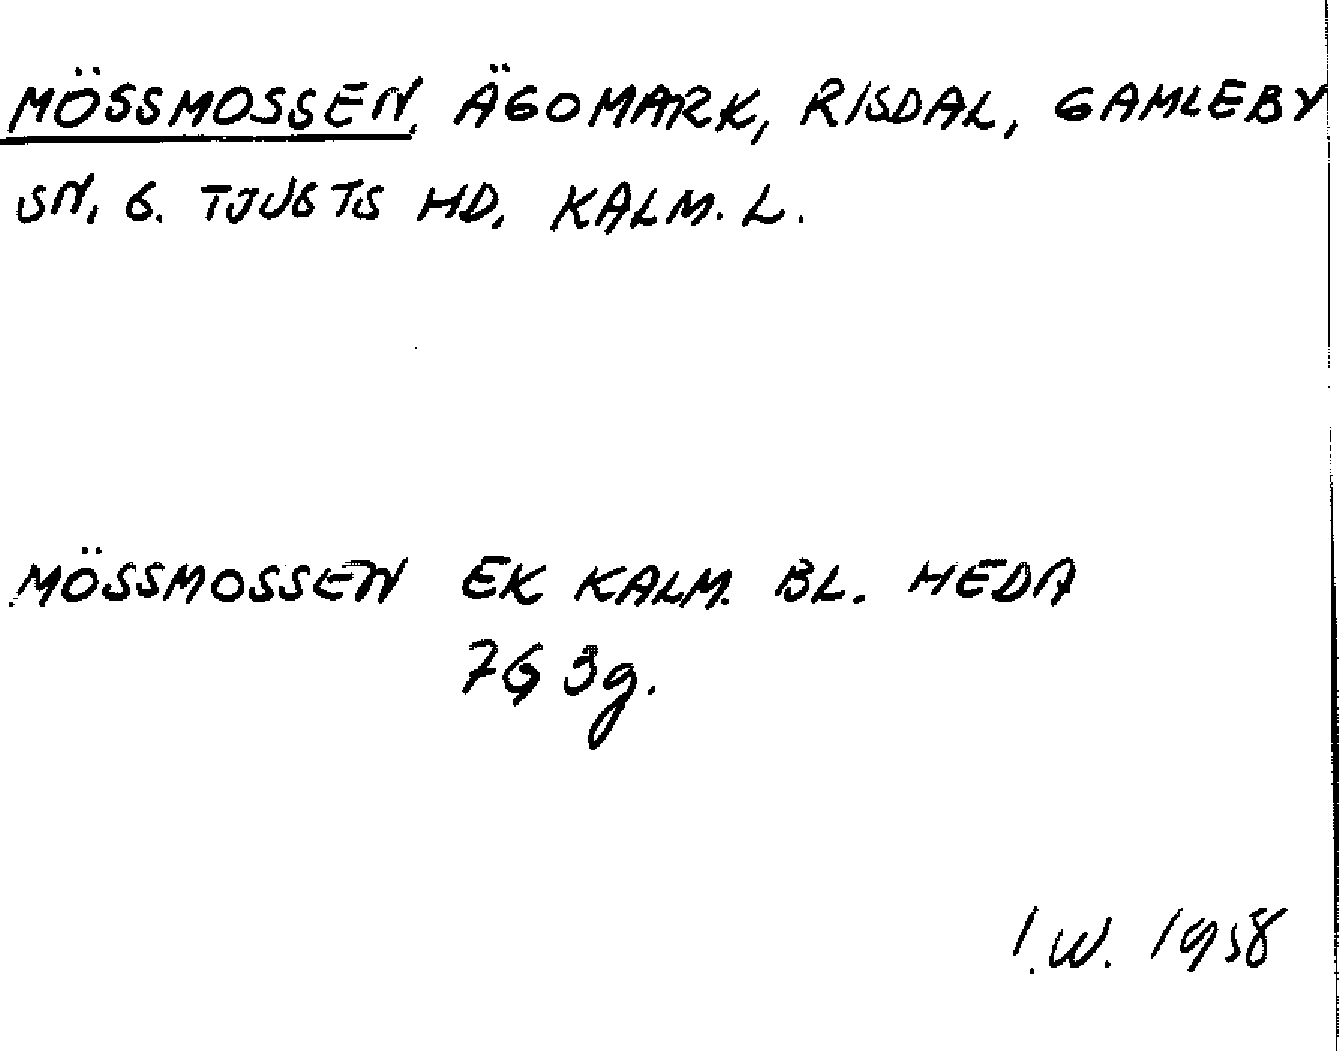 MÖSSMOSSEN, ÄGOMARK, RISDAL, GAMLEBY
SN. S. TJUSTS HD. KALM. L.
MÖSSMOSSEN EK KALM. BL. HEDA
7G 3g.
I.W. 1958